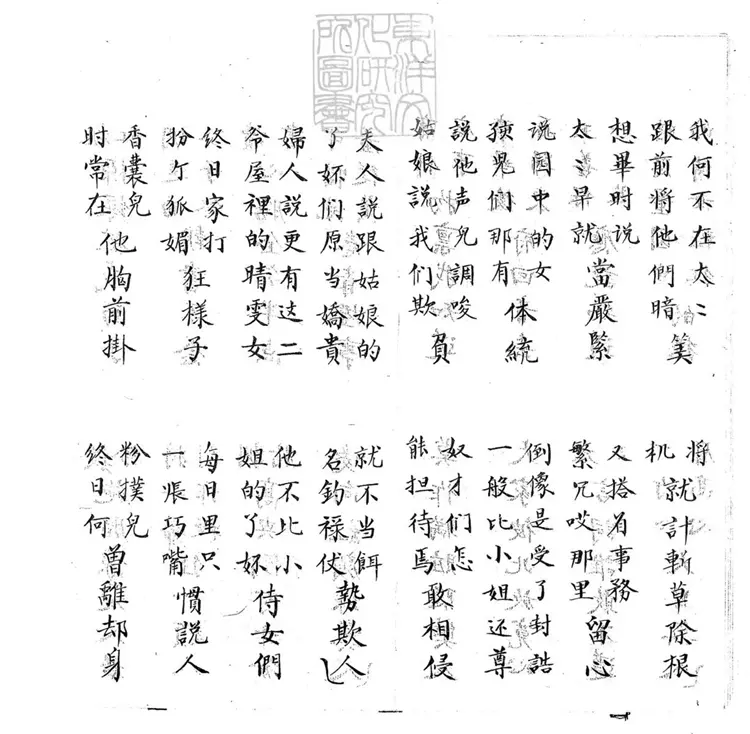 東洋文
化研究
所圖書
我何不在太〻
跟前将他們暗筭
将
机就計斬草除根
想畢时说
太〻早就當嚴緊
又搭着事務
繁冗哎那里留心
说园中的女
孩兒们那有体統
倒像是受了封誥
一般比小姐还尊
說他声兒調唆
姑娘說我们欺負
奴才们怎
能担待焉敢相侵
夫人說跟姑娘的
了妚们原当嬌貴
就不当餌
名釣禄仗勢欺人
婦人說更有这二
爷屋裡的晴雯女
他不比小
姐的了妚侍女們
终日家打
扮个狐媚狂樣子
每日里只
一張巧嘴慣說人
香囊兒
时常在他胸前掛
粉撲兒
终日何曾離却身